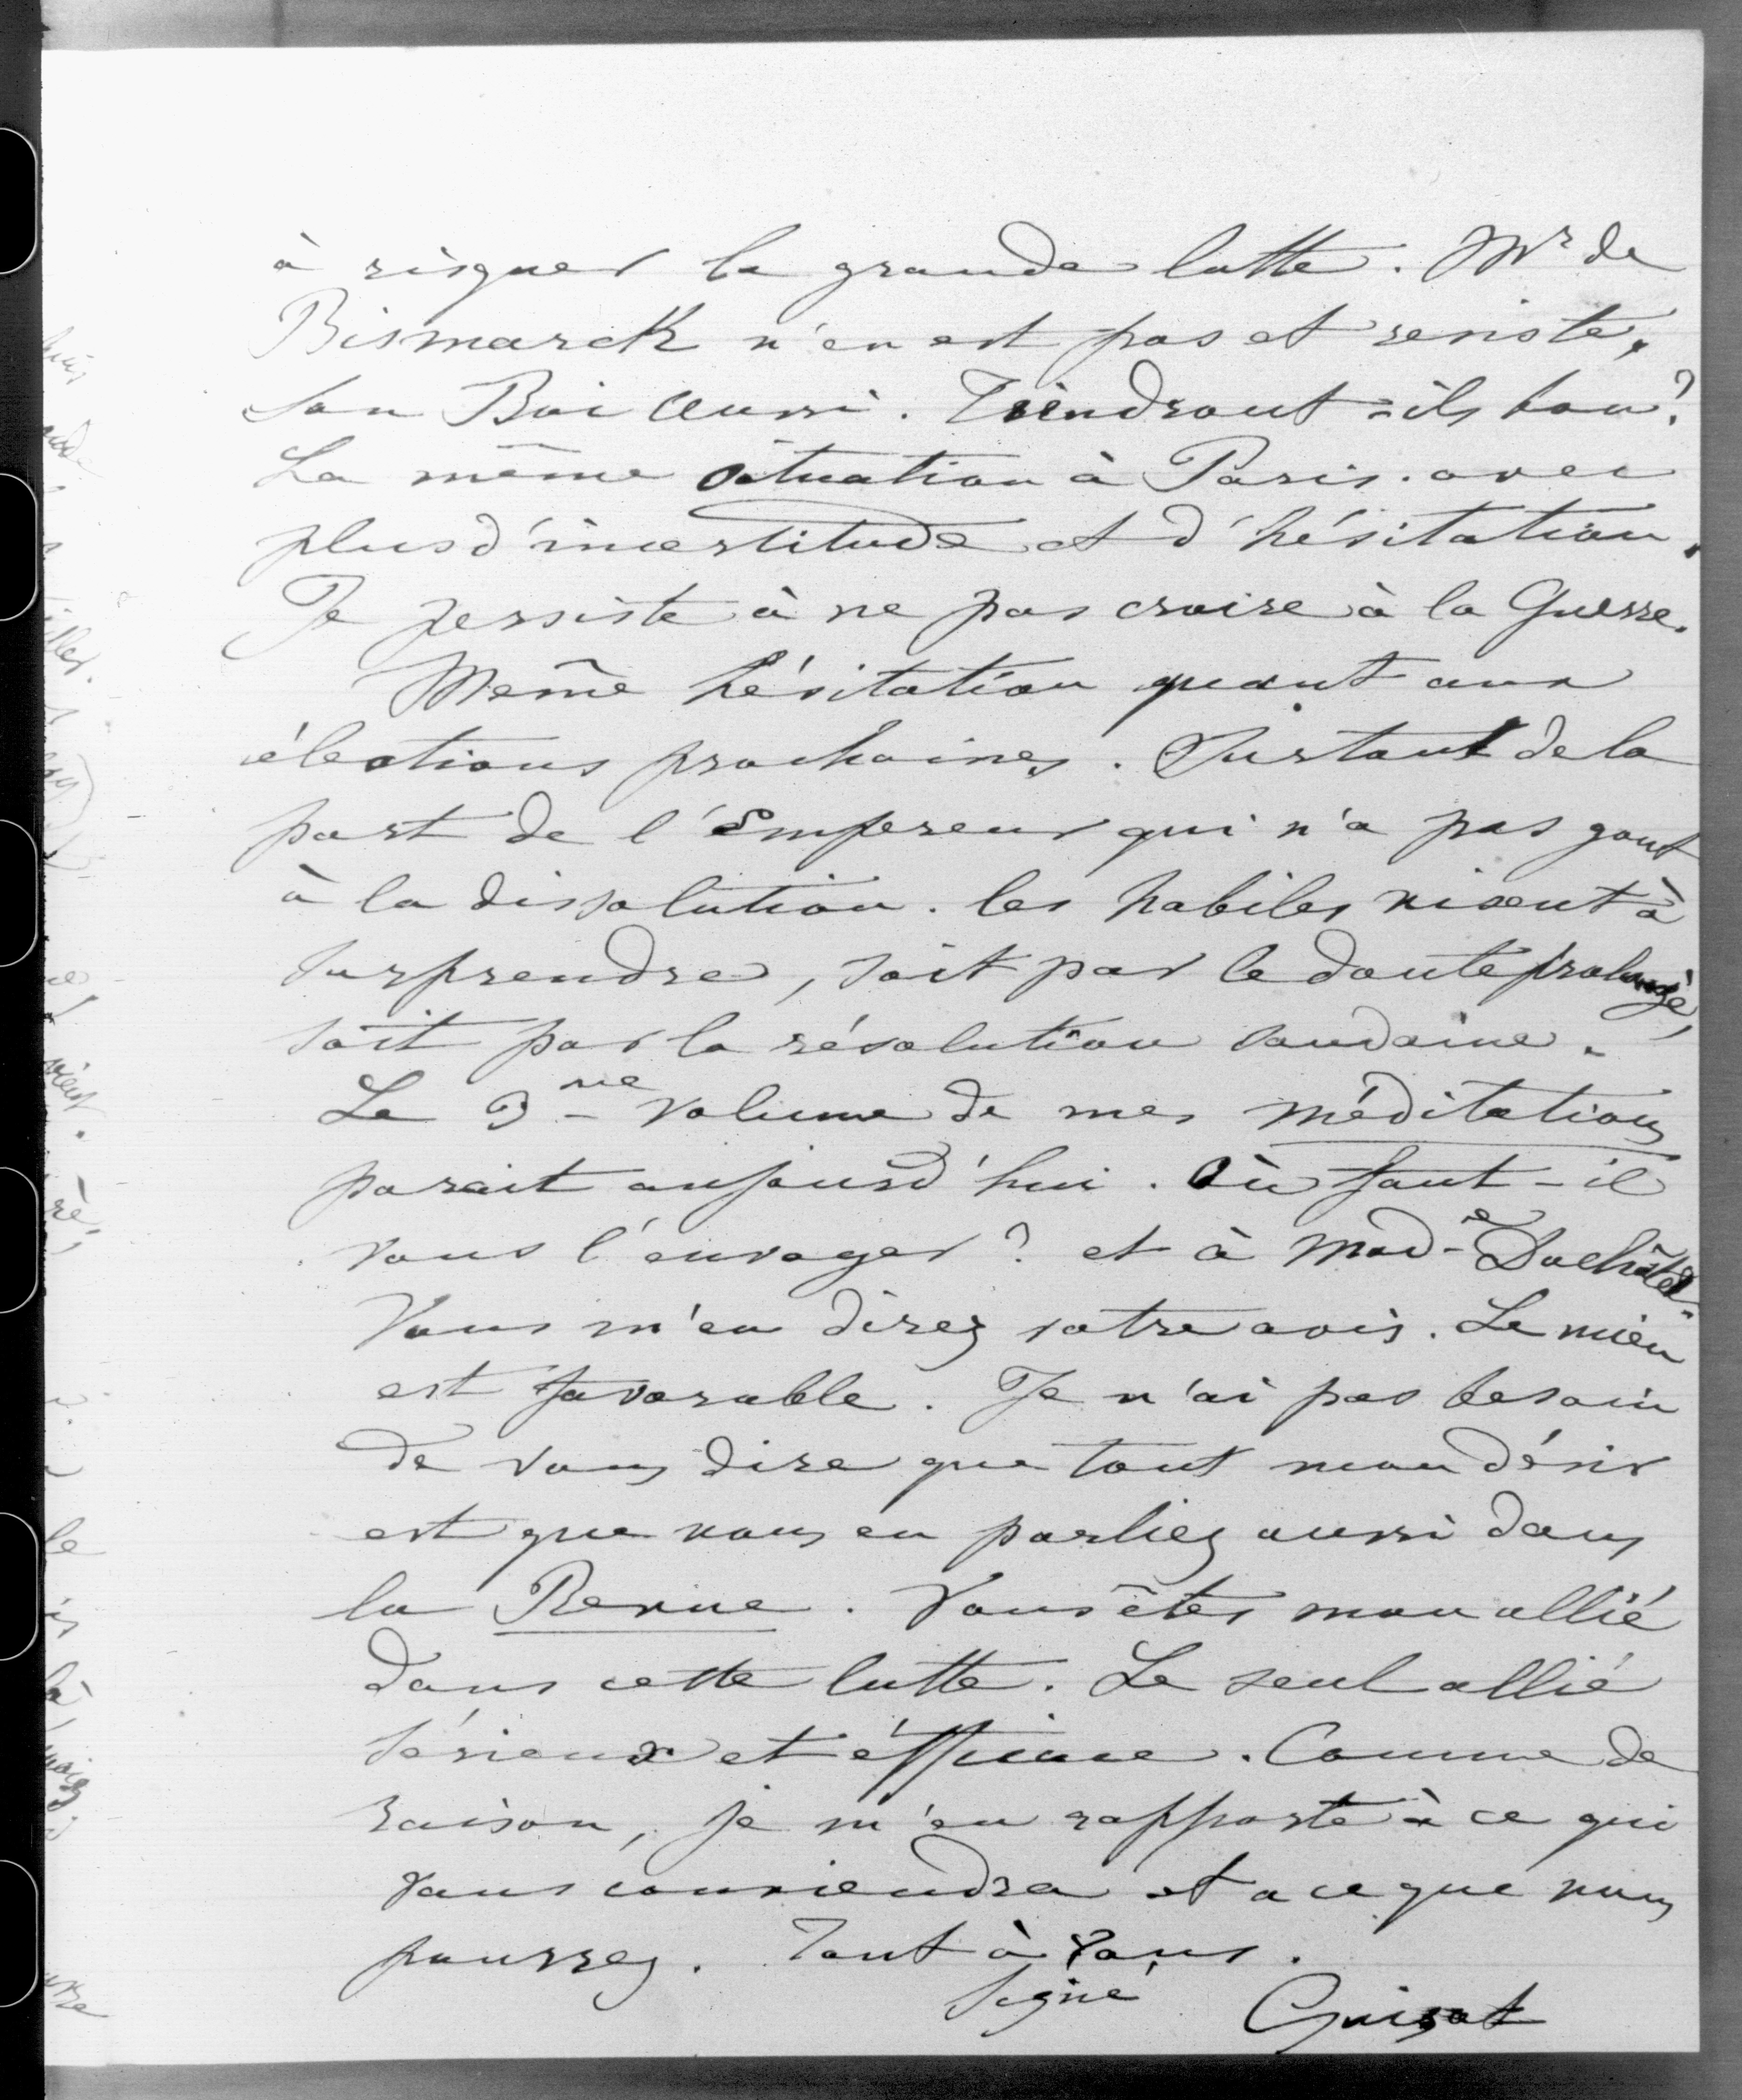 à risquer la grande lutte. Mr de
Bismarck n'en est pas et resiste,
son Roi aussi. Tiendront-ils bon?
La même situation à Paris. avec
plus d'incertitude et d'hésitation.
Je persiste à ne pas croire à la Guerre.
Même hésitation quant aux
élections prochaines. Surtout de la
part de l'Empereur qui n'a pas gout
à la dissolution. les habiles visent à
surprendre, soit par le doute prolongé,
soit par la résolution soudaine.
Le 3me volume de mes méditations
parait aujourd'hui. Où faut-il
vous l'envoyer? et à Made Duchâtel.
Vous m'en direz votre avis. Le mien
est favorable. Je n'ai pas besoin
de vous dire que tout mon désir
est que vous en parliez aussi dans
la Revue. Vous êtes mon allié
dans cette lutte. Le seul allié
sérieux et éfficace. Comme de
raison, je m'en rapporte à ce qui
vous conviendra et a ce que vous
pourrez. Tout à vous.
Signé Guizot